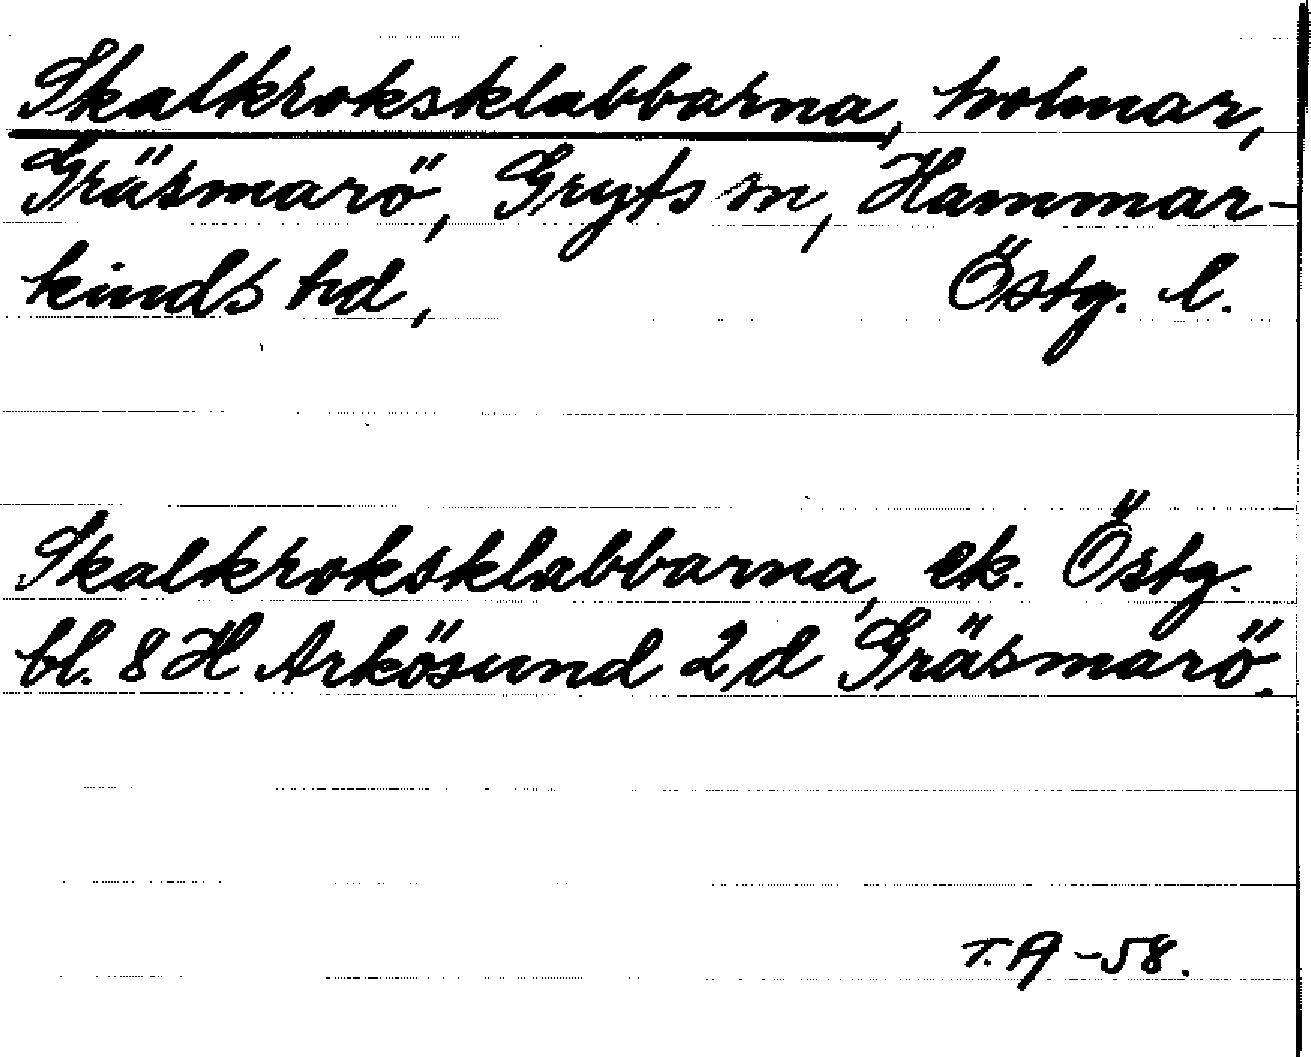 Skalkroksklabbarna, holmar,
Gräsmarö, Gryts sn, Hammar-
kinds hd, Östg. l.
Skalkroksklabbarna, ek. Östg.
bl. 8 H Arkösund 2d Gräsmarö.
T.A -58.